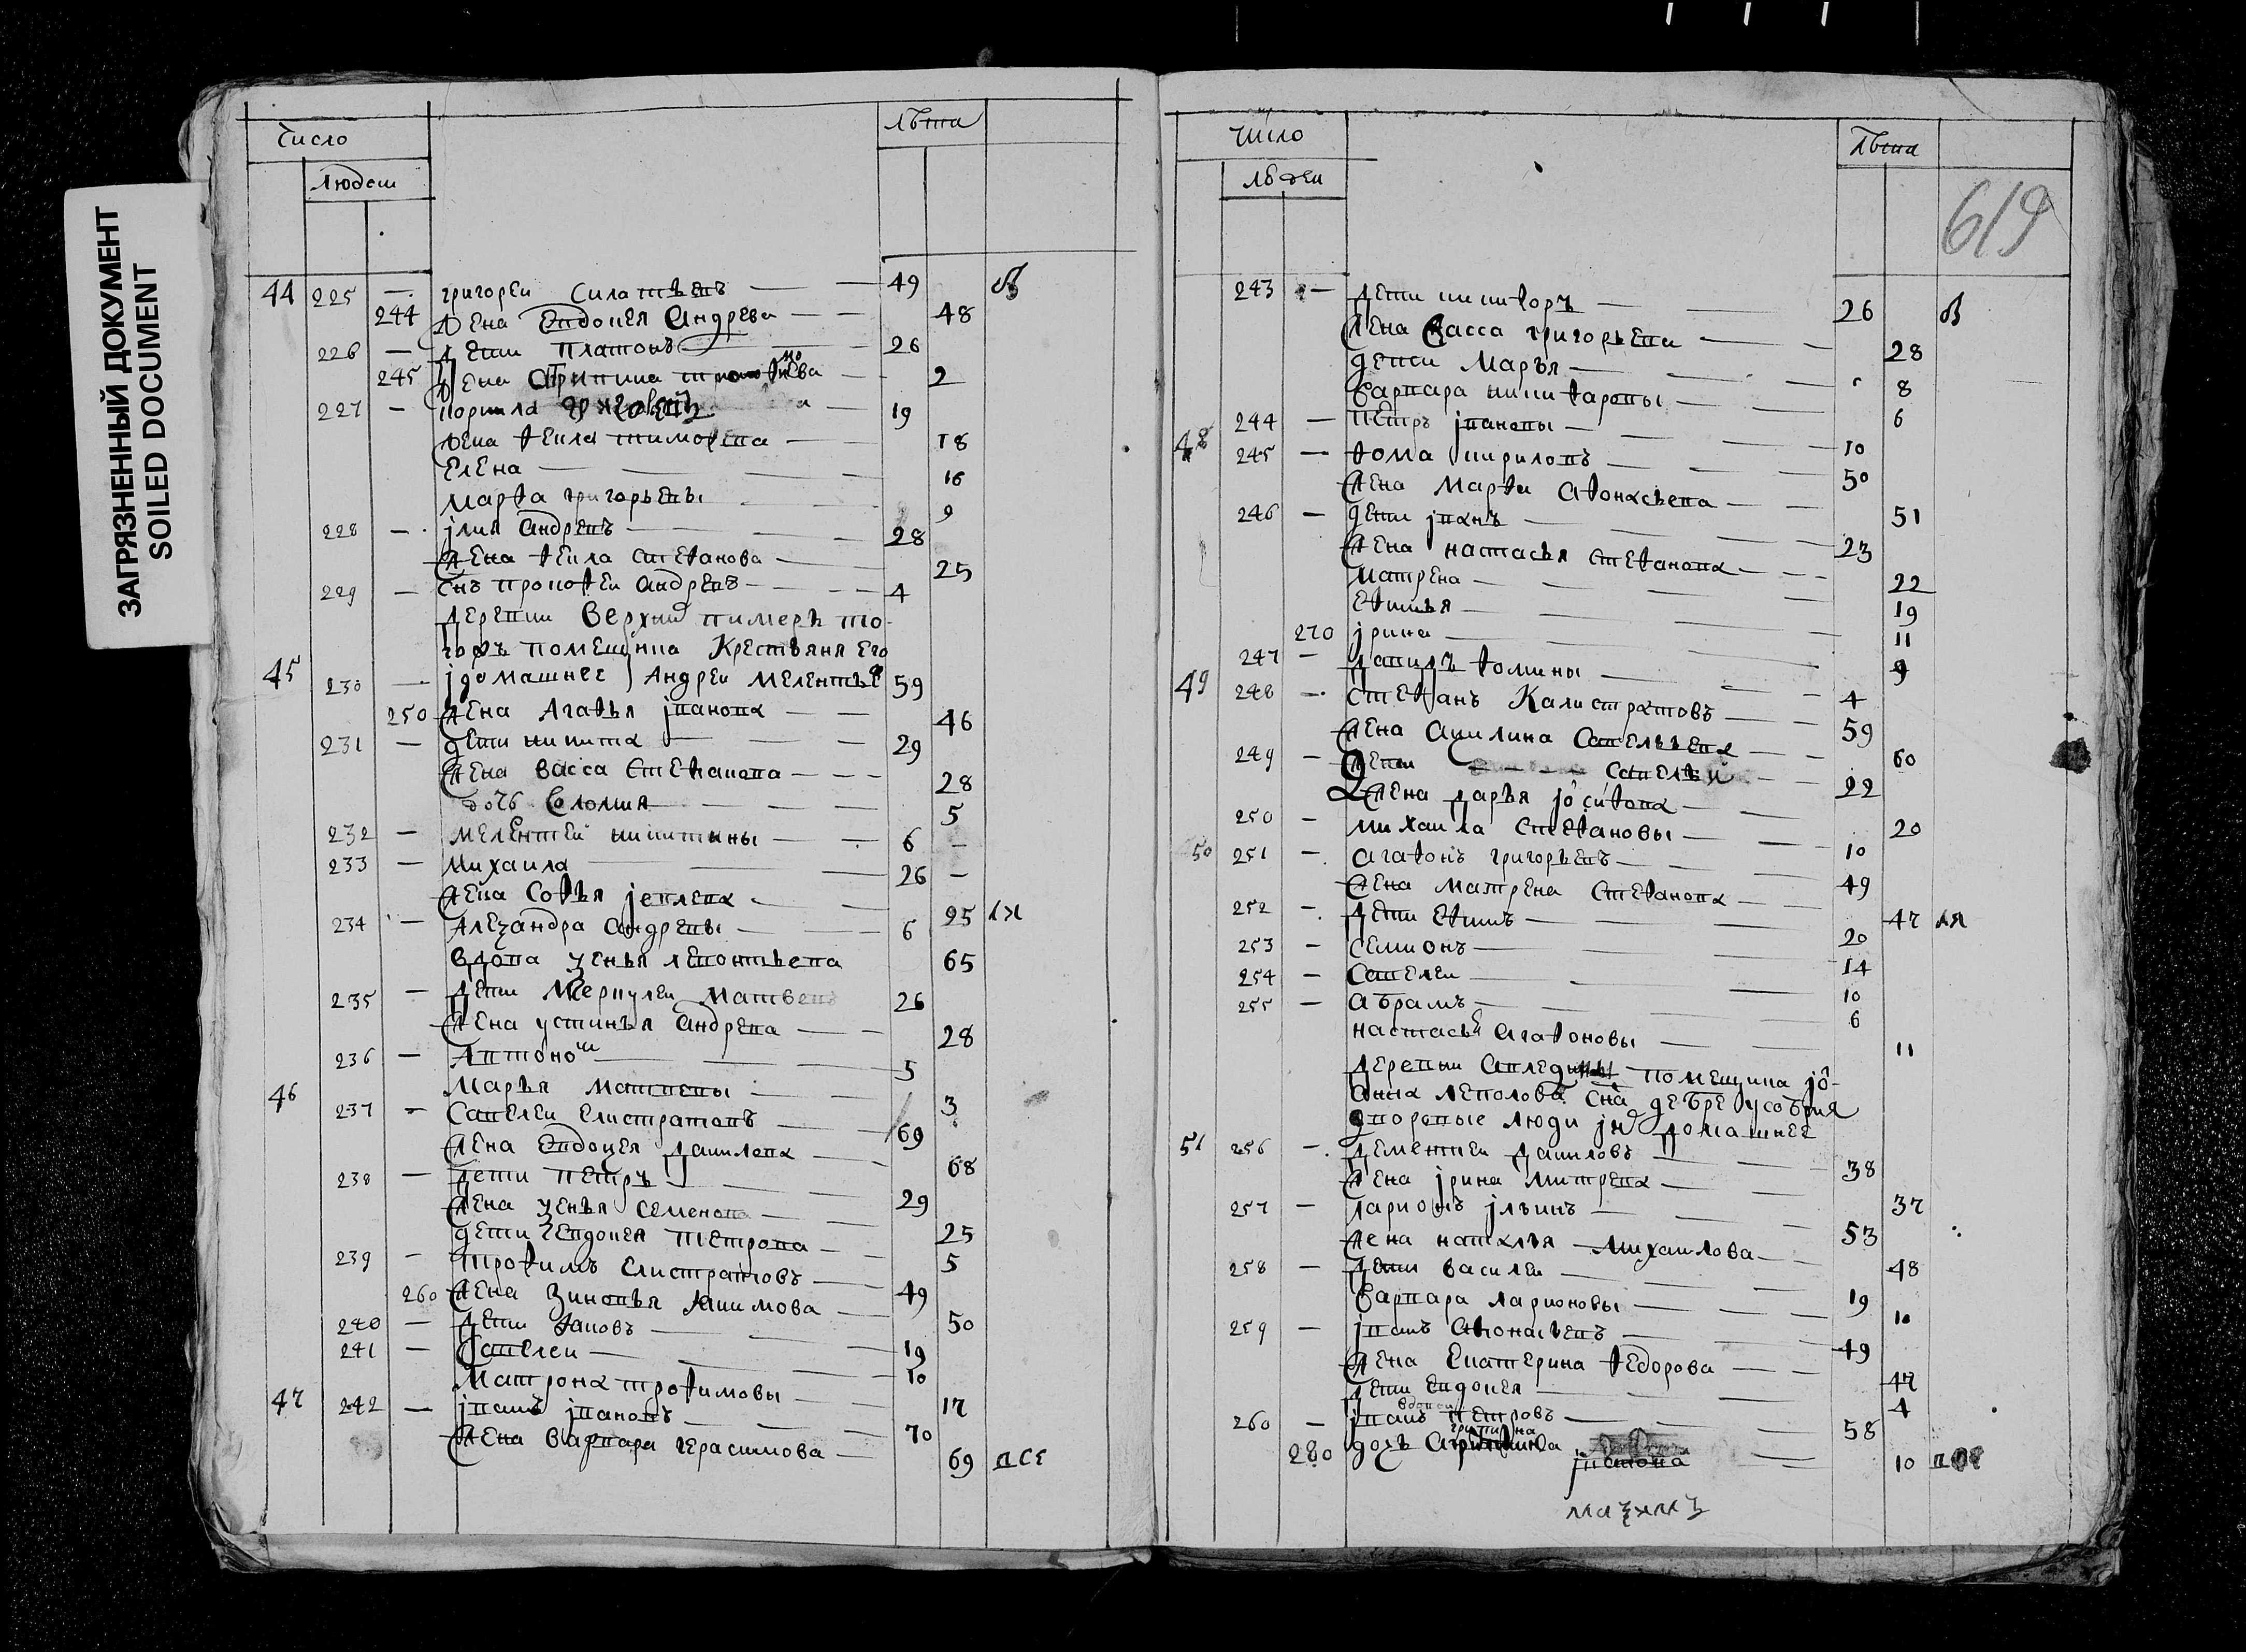 ЗАГРЯЗНЕННЫЙ ДОКУМЕНТ
SOILED DOCUMENT
Число
Людеи
лѣта
44 225 — григореи Силатьевъ 49
244 жена Евдокея Андрева 48
226 — дети Платонъ 26
245 жена 2
227 — 19
жена Фекла тимофева 18
Елена 16
Марфа григорьевы 9
228 — јлия Андревъ 28
жена Фекла Стефанова 25
229 — снъ Прокофеи Андревъ 4
деревни Верхнии
помещика Крестьяня Его
45 230 — јдомашнее Андреи Мелентье 59
250 жена Агафья јванова 46
231 — дети никита 29
жена Васса Стефанова 28
дочь Соломия 5
232 — Мелентеи никитины 6 —
233 — Михаила 26 —
жена Софья јевлева 25
234 — Алеѯандра Андревы 6
Вдова ѯенья леонтьева 65
235 — дети Меркулеи Матвевъ 26
жена устинья Андрева 28
236 — Автоно 5
Марья Матвевы 3
46 237 — Савелеи Елистратовъ 69
жена Евдокея данилова 68
238 — дети Петръ 29
жена ѯенья Семенова 25
дети Евдокея Петрова 5
239 — трофимъ Елистратовъ 49
260 жена Зиновья Акимова 50
240 — дети Іаковъ 19
241 — Савелеи 10
Матрона трофимовы 17
47 242 — јванъ јвановъ 70
жена Варвара герасимова 69 все
Число
людеи
лѣта
619
243 — дети никифоръ 26
жена Васса григорьева 28
дети Марья 8
Варвара никифоровы 6
244 — Петръ јвановы 10
48 245 — Фома кириловъ 50
жена Марфа Афонасьева 51
246 — дети јванъ 23
жена настасья Стефанова 22
Матрена 19
Ефимья 11
270 јрина 9
247 — данилъ Фомины 4
49 248 — Стефанъ Калистратовъ 59
жена Акилина Савельева 60
249 — дети Савелеи 22
жена дарья јосифова 20
250 — михаила Стефановы 10
50 251 — агафонъ григорьевъ 49
жена матрена Стефанова 47
252 — дети Ефимъ 20
253 — Семионъ 14
254 — Савелеи 10
255 — абрамъ 6
настасья агафоновы 11
деревни помещика јо-
анна
дворовые люди јн домашнее
51 256 — дементеи даниловъ 38
жена јрина митрева 37
257 — ларионъ јльинъ 53
жена наталья Михаилова 48
258 — дети василеи 19
Варвара ларионовы 10
259 — јванъ Афонасьевъ 49
жена Екатерина Федорова 47
дети Евдокея 4
260 — јванъ Петровъ 58
280 дочь јванова 10